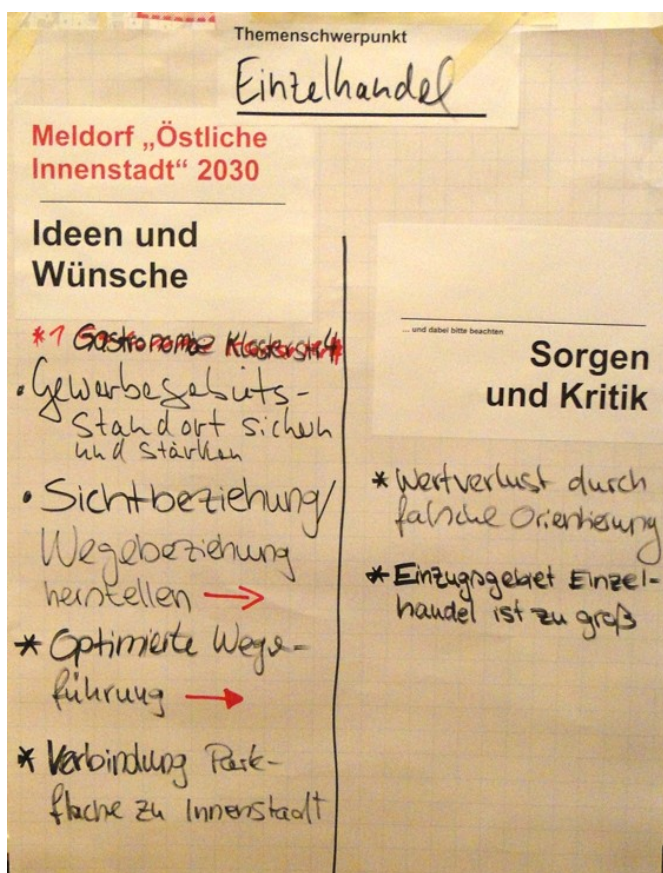 Themenschwerpunkt
Einzelhandel
Meldorf „Östliche
Innenstadt“ 2030
Ideen und
Wünsche
*1 Gastronomie Klosterstr 4
• Gewerbegebiets-
Standort sichern
und stärken
• Sichtbeziehung/
Wegebeziehung
herstellen →
* Optimierte Wege-
führung →
* Verbindung Park-
fläche zu Innenstadt
... und dabei bitte beachten
Sorgen
und Kritik
* Wertverlust durch
falsche Orientierung
* Einzugsgebiet Einzel-
handel ist zu groß